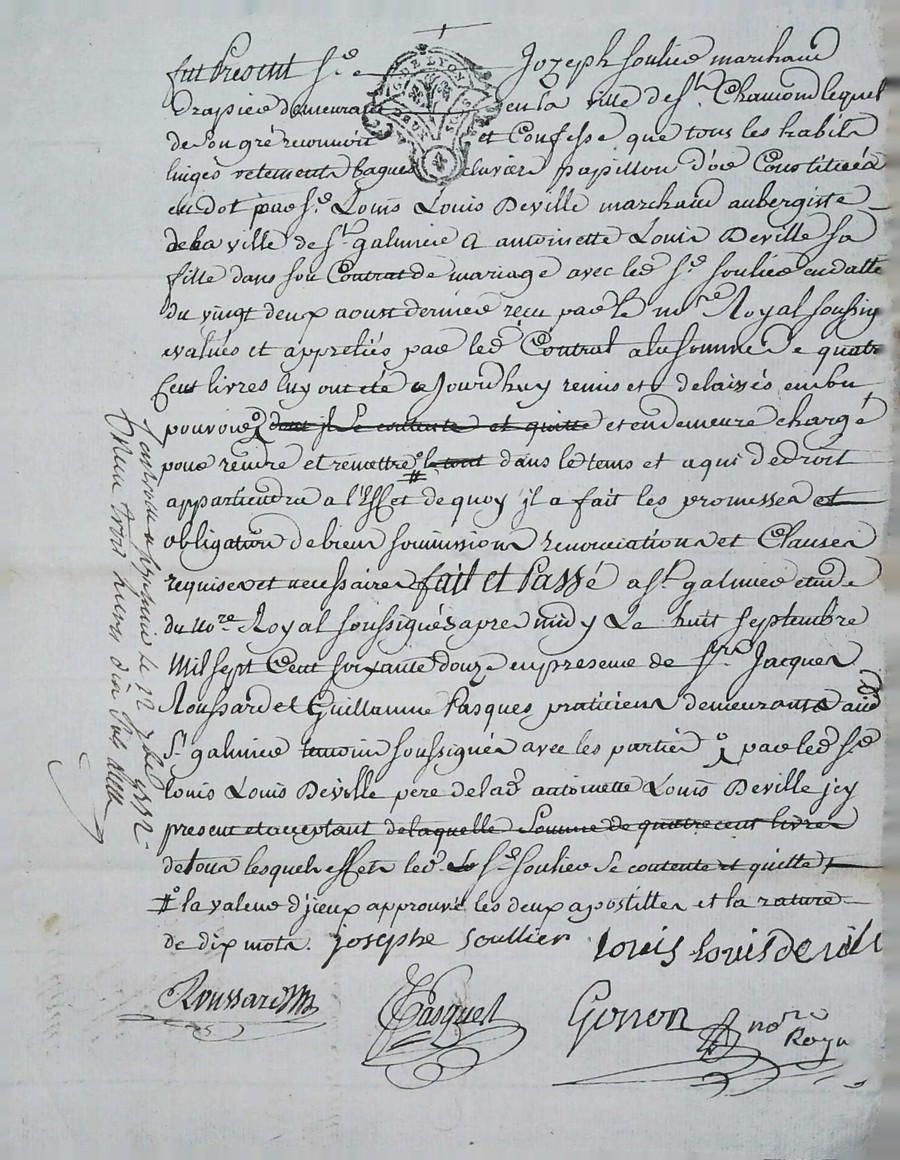 fut Present Sr. Jozeph Soulier marchand
Drapier demeurant en la ville de St. Chamond lequel
de son gré reconnoit et Confesse que tous les habits
linges vetements bagues claviers papillon d'or Constitués
en dot par Sr. Louis Louis Deville marchand aubergiste
de la ville de St. galmier a antoinette Louis Deville sa
fille dans son Contrat de mariage avec led. Sr. Soulier en datte
du vingt deux aoust dernier reçu par le no.re Royal soussig
evalués et appretiés par led. Contrat a la somme de quatre
Cent livres luy ont été ce Jourdhuy remis et delaissés en su
pouvoir dont jl se contente et quitte et en demeure chargé
pour rendre et remettre # le tout dans le tems et a qui de droit
appartiendra a l'Effet de quoy jl a fait les promesses et
obligation de biens soumissions renonciations et Clauses
requises et necessaires fait et Passé a St. galmier etude
du no.re Royal soussigné apres midy Le huit septembre
Mil sept Cent soixante douze en presence de Srs. Jacques
Roussard et Guillaume Pasques praticiens demeurants aud
St. galmier temoins soussignés avec les parties par led. Sr.
Louis Louis Deville pere de lad. antoinette Louis Deville jcy
present et acceptant de laquelle Somme de quatre cent livres
de tous lesquels effets led. Sr. Soulier se contente et quitte
# la valeur d'jceux approuvé les deux apostilles et la rature
de dix mots. josephe soullier louis louis deville
Roussard Pasques Gonon no.re
Royal
GEN. DE LYON
Controllé a St. galmier le 22 7bre 1772